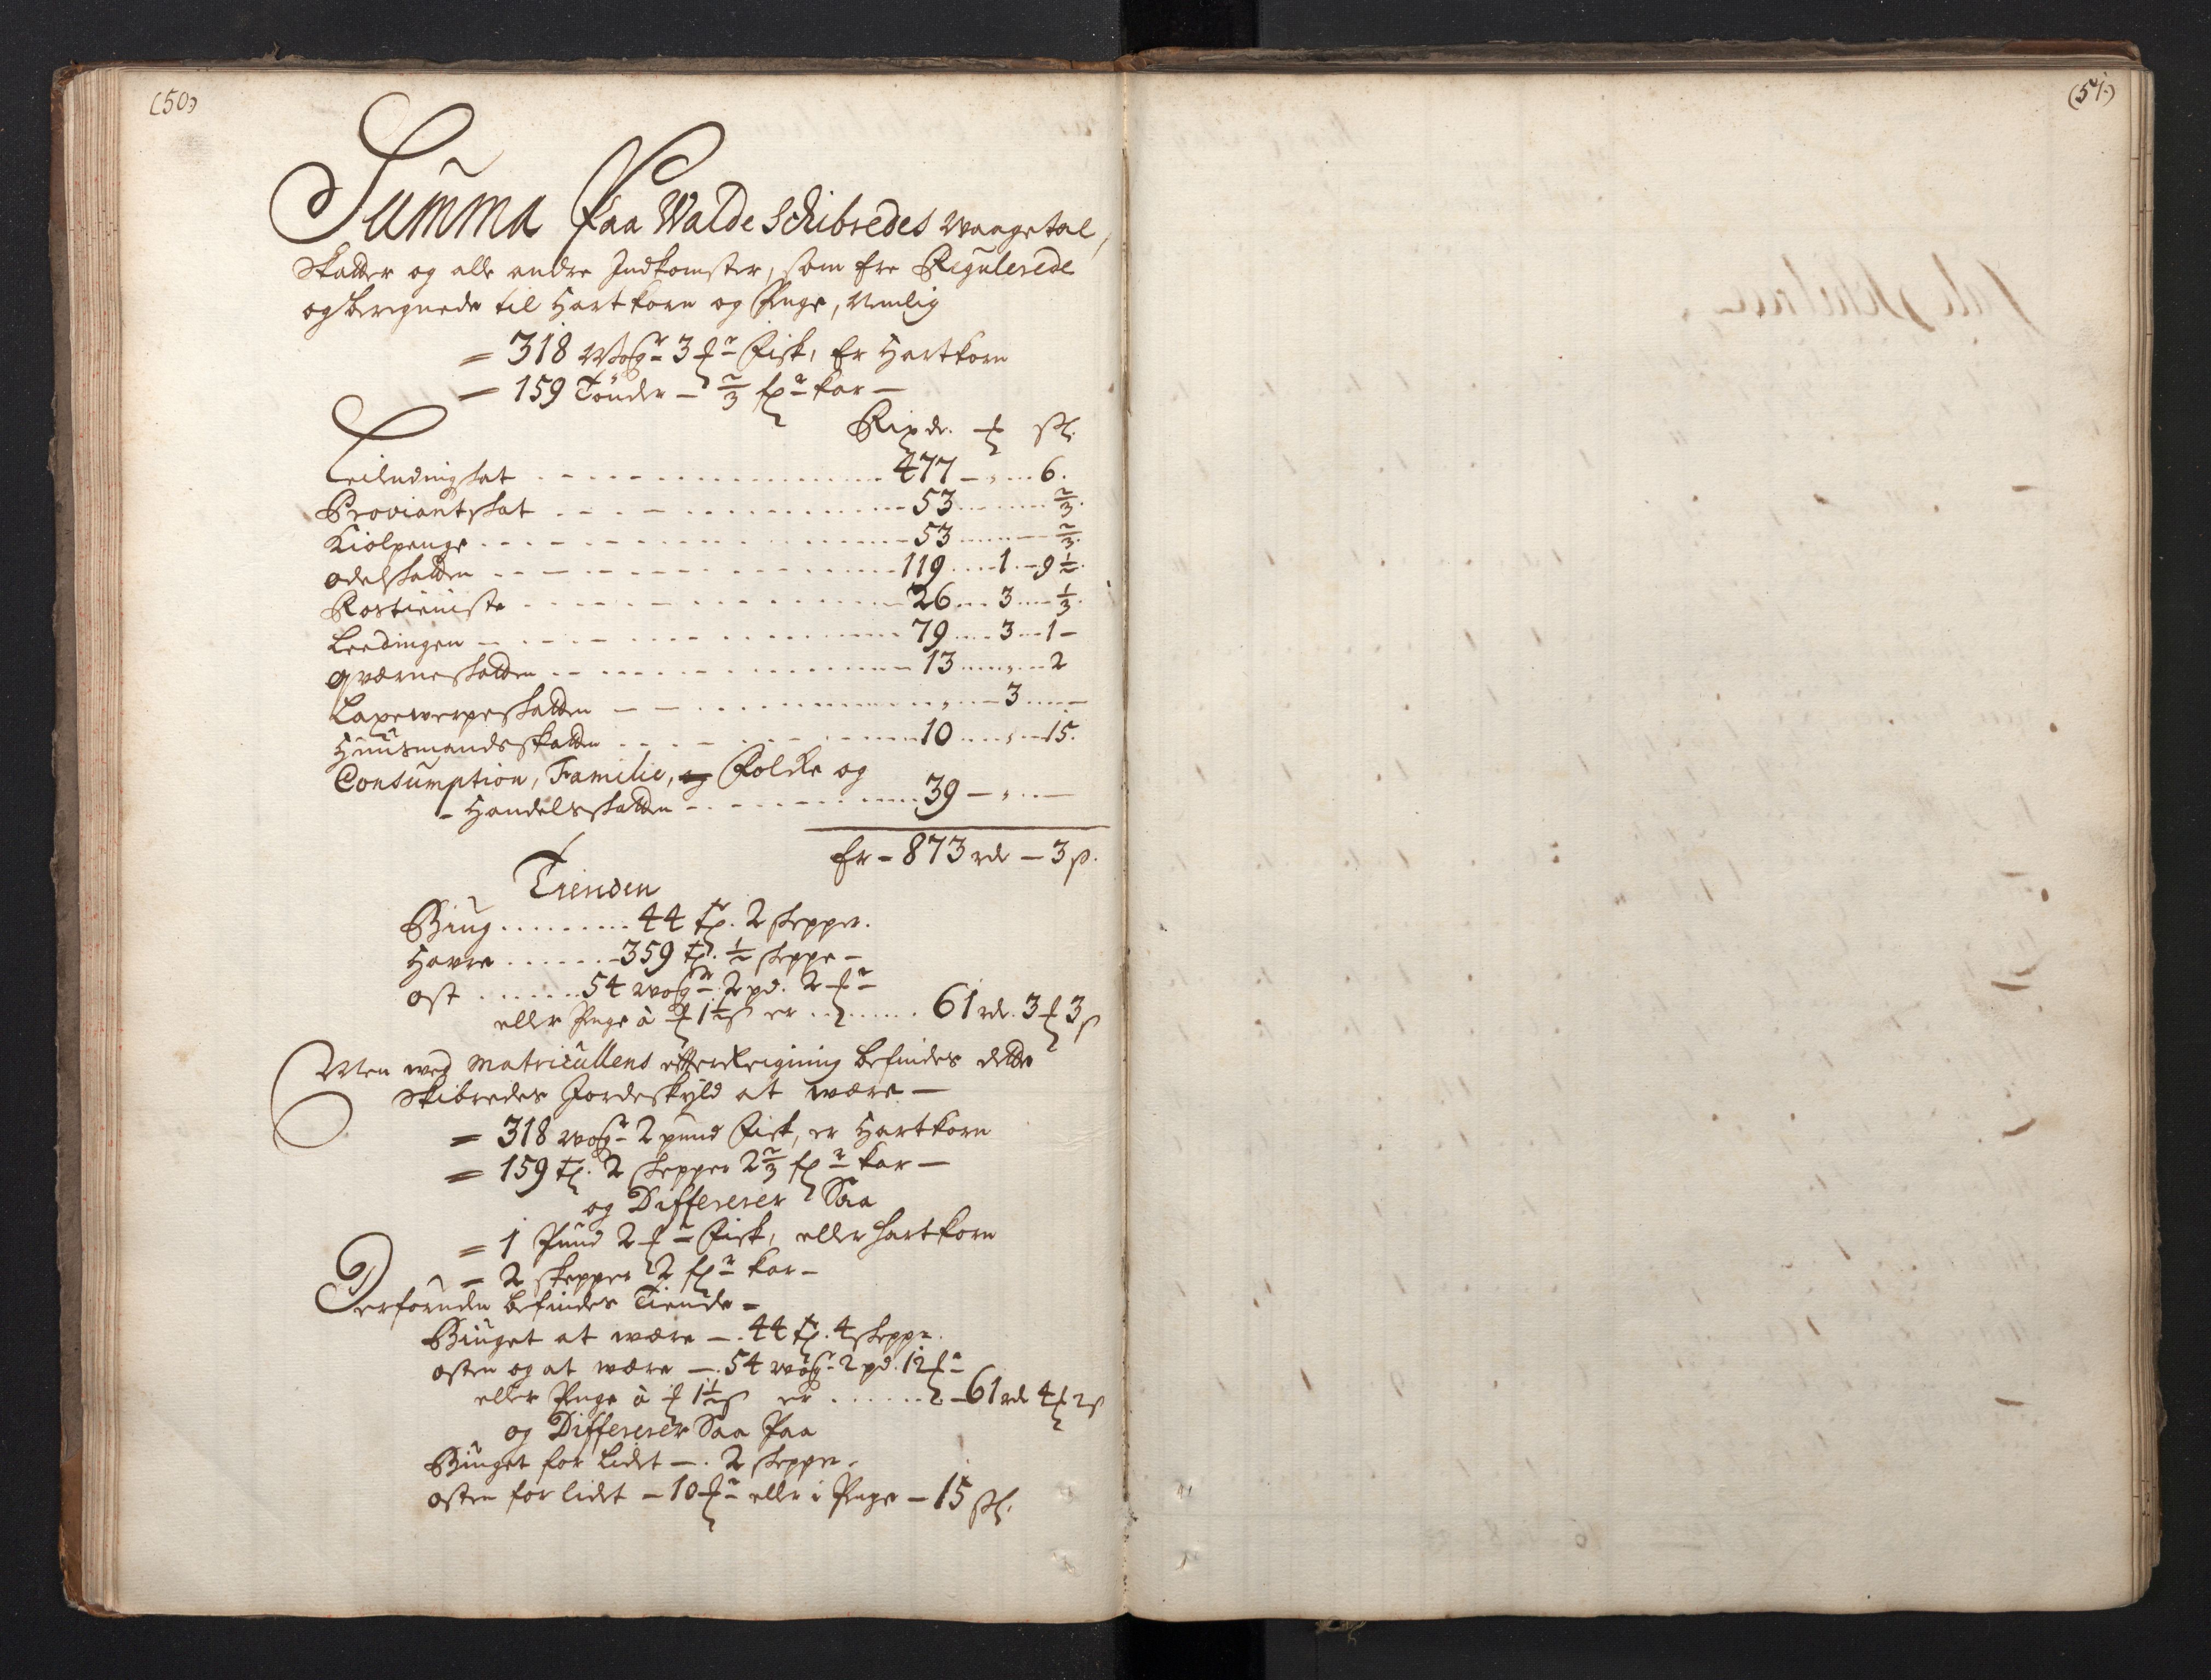 (50)
Summa Paa Walde Schibredes waagetal,
Skatter og alle andre Indkomster, som Ere Regulerede
og beregnede til Hartkorn og Penge, Nemlig
= 318 Woger 3 Fisk, Er Hartkorn
= 159 Tönder – 2/3 kar –
Rixdr. sk.
Leilendingskat 477 – „ 6.
Proviantskat 53 2/3.
Kiolpenge 53 2/3.
odelskatten 119 1 9 1/2.
Rostieniste 26 3 1/3.
Leedingen 79 3 1 –
Qværneskatten 13 „ 2
Laxewerpeskatten „ 3 –
Huusmandsskatten 10 „ 15.
Consumption, Familie, og Folke og
– Handelsskatten 39 – „ –
Er – 873 rdr – 3 s.
Tienden
Biug 44 tr. 2 skepper.
Havre 359 tr. 1/2 skeppe –
ost 54 woger 2 pd. 2
eller Penge à 1 1/2 s er 61 rdr. 3 3 s
Men wed Matricullens efterReigning befindes dette
Skibredes Jordeskyld at være –
= 318 woger 2 pund Fisk, er Hartkorn
= 159 tr. 2 skepper 2 2/3 kar –
og Differerer Saa
= 1 Pund 2 Fisk, eller Hartkorn
= 2 skepper 2 kar –
Derforuden befindes Tiende –
Biuget at være – 44 tr. 4 skeppr.
osten og at være – 54 woger 2 pd. 12
eller Penge à 1 1/2 s er 61 rdr 4 2 s
og Differerer Saa Paa
Biuget for Lidet – 2 skepper.
osten for lidet – 10 eller i Penge – 15 sk.
(51)